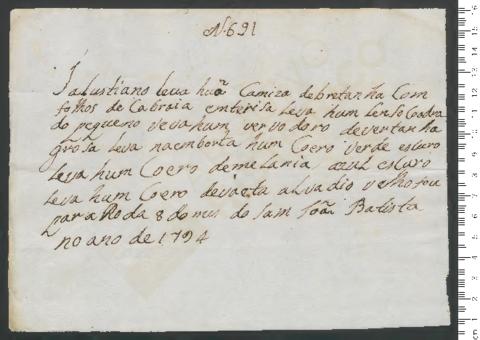 N. 691
Salustiano leva huã Camiza debretanha Com
folhos de Cabraia enterisa leva hum lenso Coadra
do pequeno leva hum vervodoro devertanha
grosa leva naemborta hum Coero verde escuro
leva hum Coero demelania azul escuro
leva hum Coero devaeta alvadio velho foi
para Roda 8 do mes do Sam João Batista
no ano de 1794